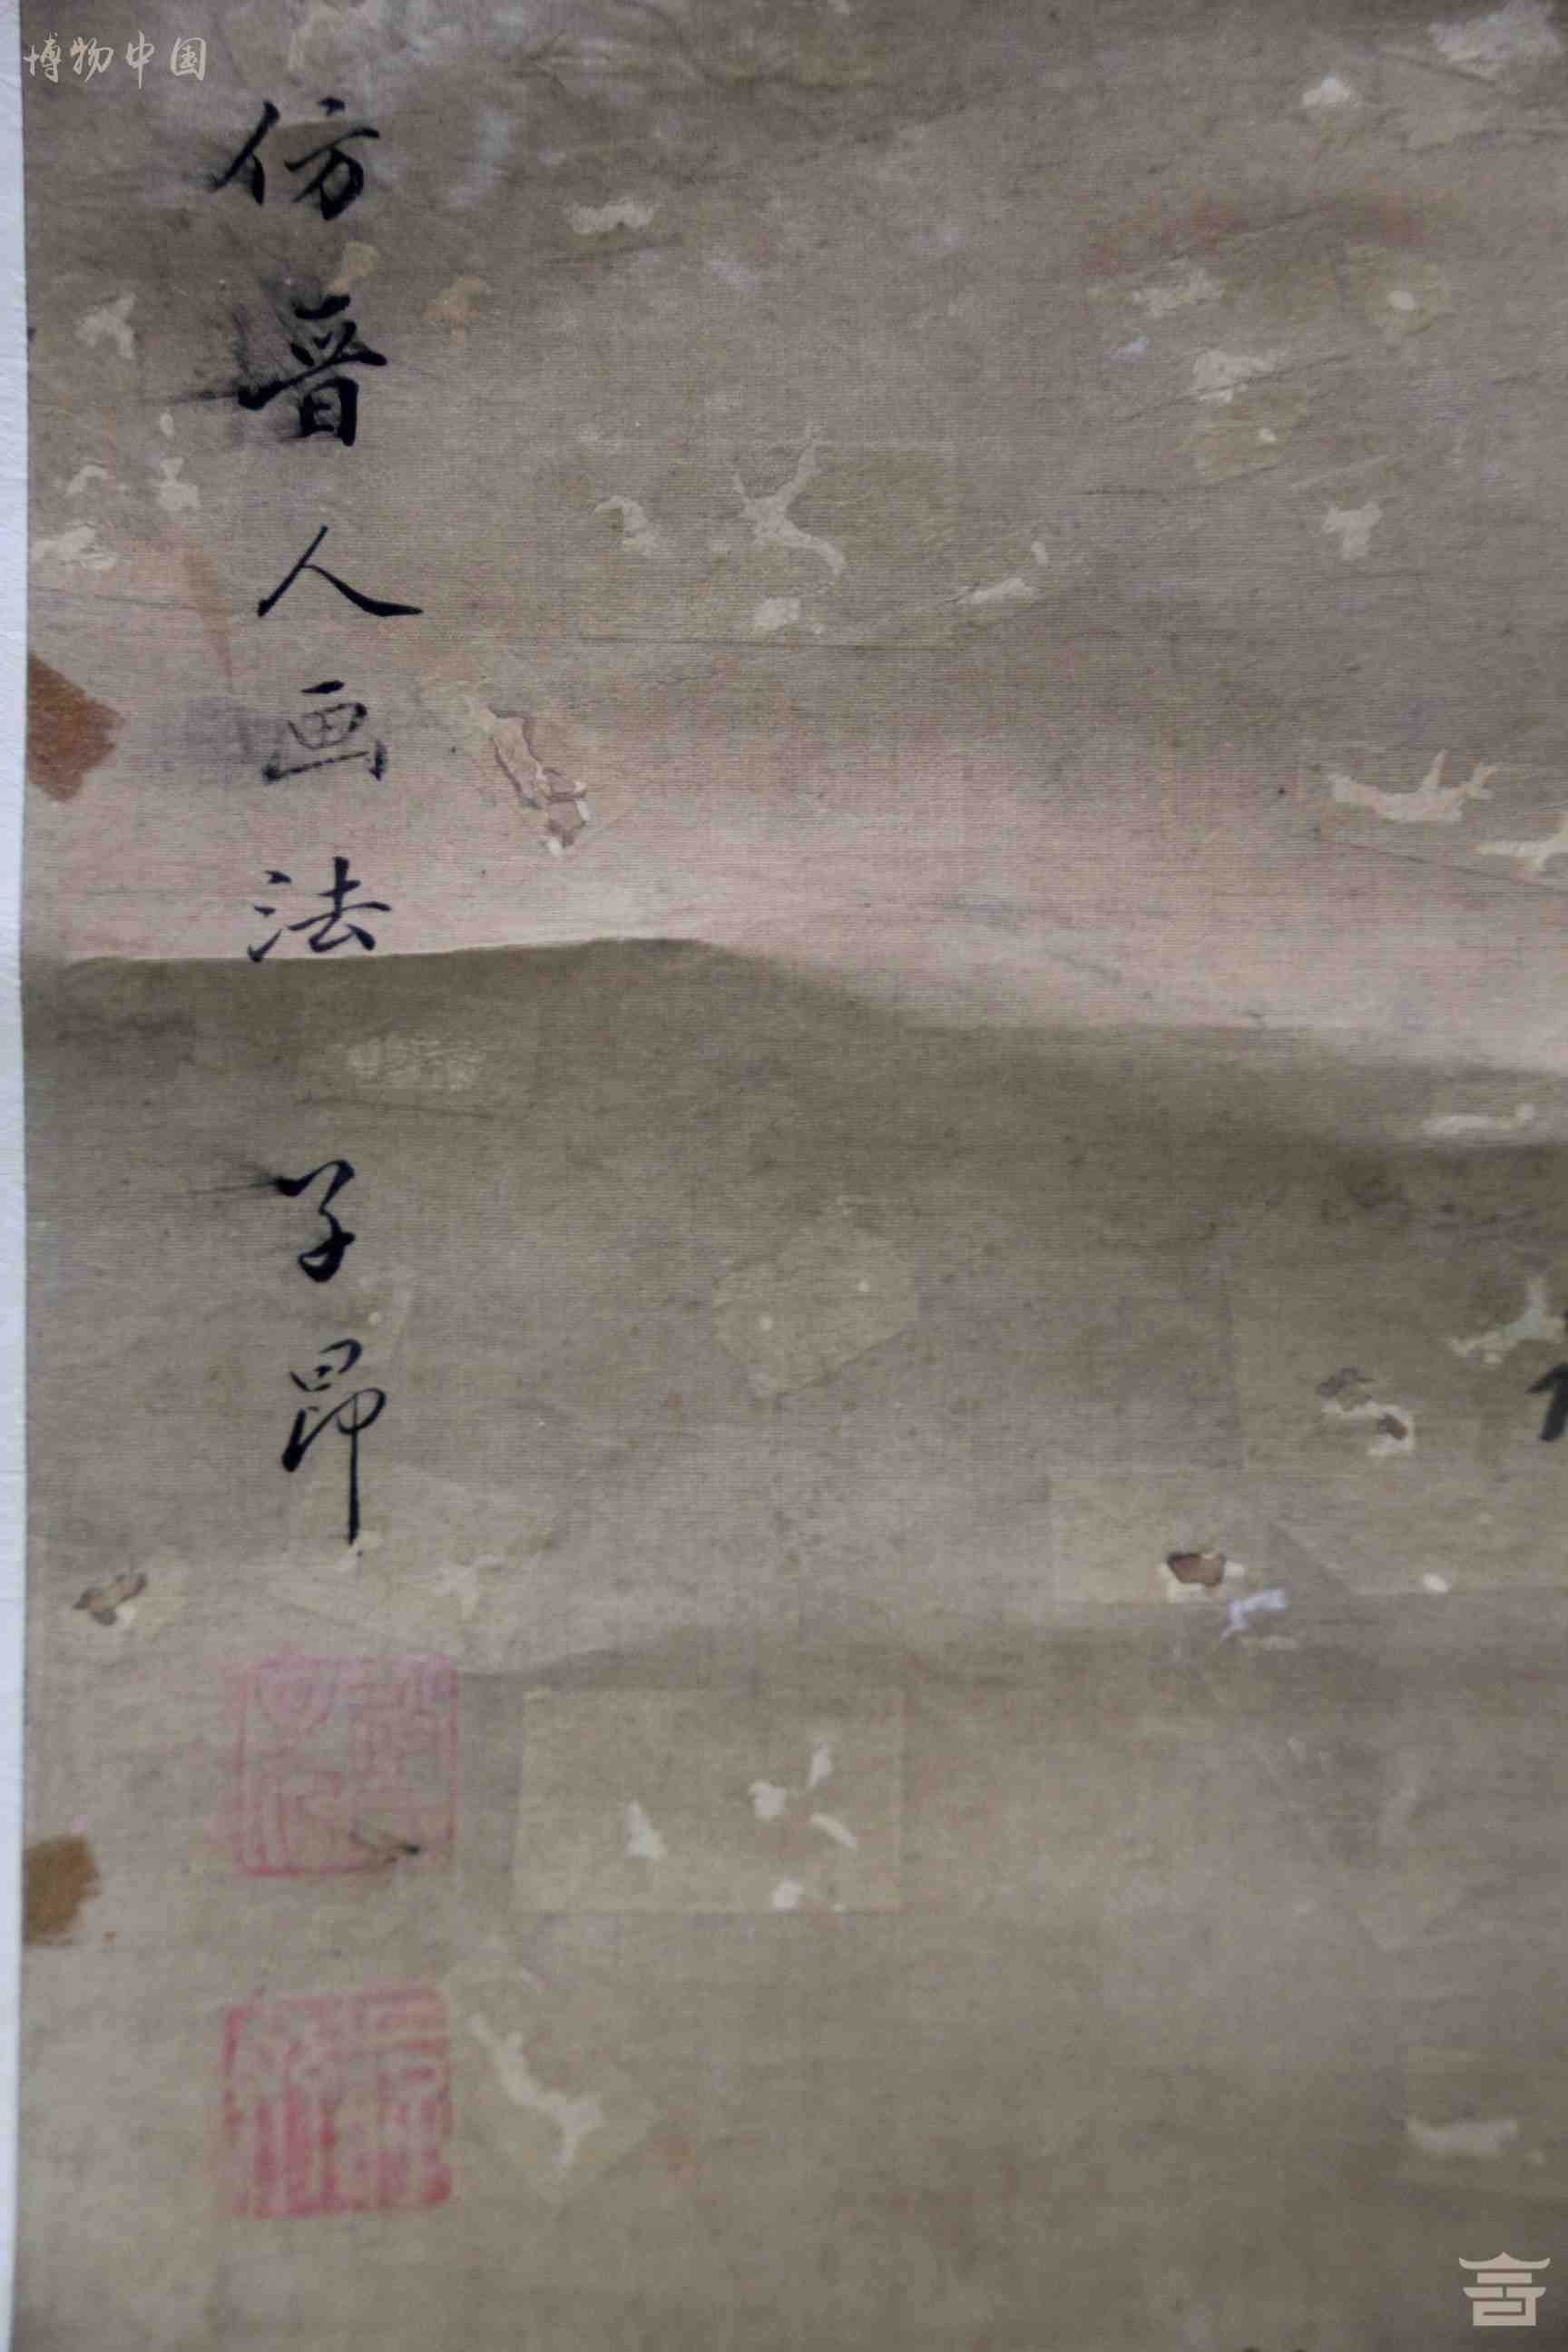 博物中国
仿晋人画法 子昂